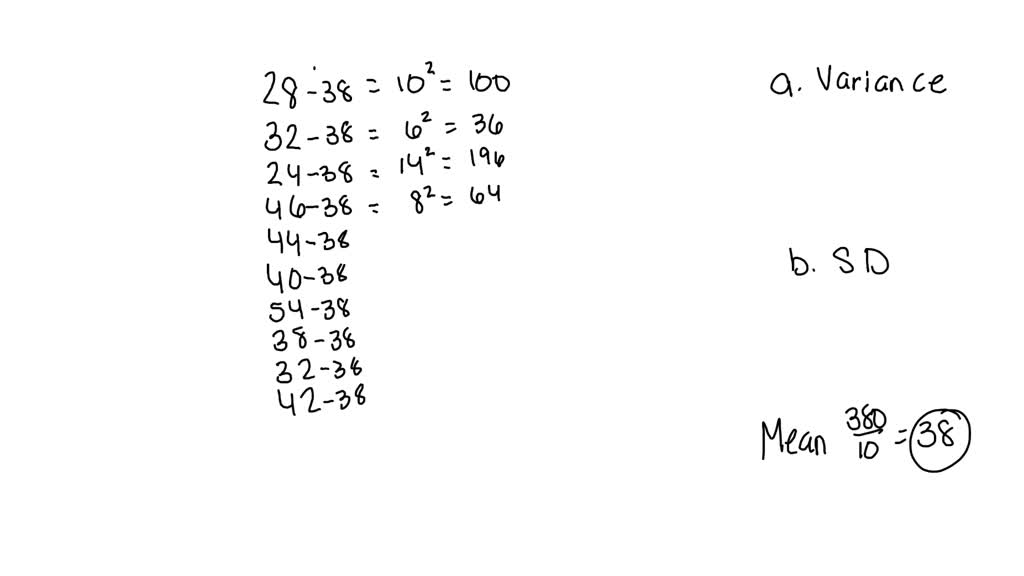 28-38 = 10² = 100
32-38 = 6² = 36
24-38 = 14² = 196
46-38 = 8² = 64
44-38
40-38
54-38
38-38
32-38
42-38
a. Variance
b. SD
Mean 380/10 = 38